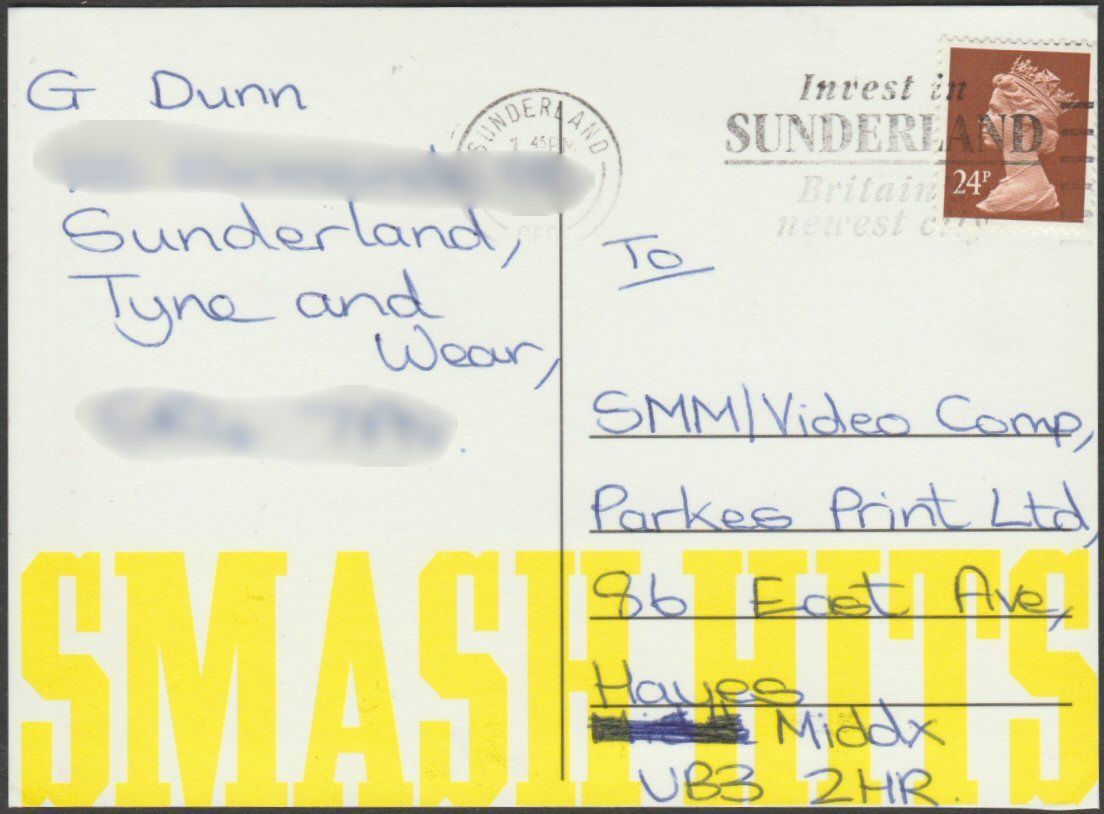 G Dunn
Sunderland,
Tyne and
Wear,
SUNDERLAND
Invest in
SUNDERLAND
Britain's
newest city
24P
To
SMM/Video Comp,
Parkes Print Ltd,
86 East Ave,
Hayes
Middx
UB3 2HR.
SMASH HITS